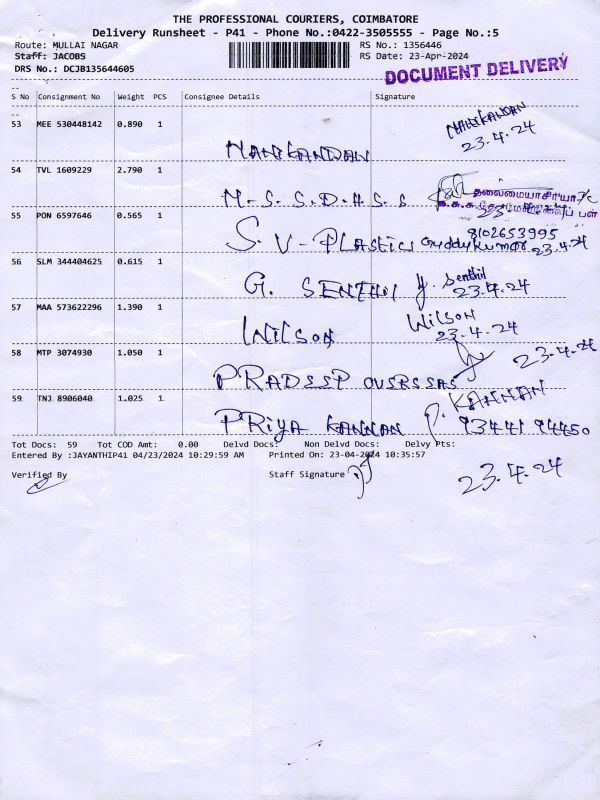 THE PROFESSIONAL COURIERS, COIMBATORE
Delivery Runsheet - P41 - Phone No.:0422-3505555 - Page No.:5
Route: MULLAI NAGAR RS No.: 1356446
Staff: JACOBS RS Date: 23-Apr-2024
DRS No.: DCJB135644605
DOCUMENT DELIVERY
S No Consignment No Weight PCS Consignee Details Signature
53 MEE 530448142 0.890 1 MANIKANDAN MANIKANDAN
23.4.24
54 TVL 1609229 2.790 1 M.S.S.D.H.S.S
தலைமையாசிரியர்
55 PON 6597646 0.565 1 S.V-PLASTICS Guddykumar 8102653995
23.4.24
56 SLM 344404625 0.615 1 G. SENTHIL Senthil
23.4.24
57 MAA 573622296 1.390 1 WILSON WILSON
23.4.24
58 MTP 3074930 1.050 1 PRADEEP OVERSEAS 23.4.24
59 TNJ 8906040 1.025 1 PRIYA KANNAN P. KANNAN
93441 94450
Tot Docs: 59 Tot COD Amt: 0.00 Delvd Docs: Non Delvd Docs: Delvy Pts:
Entered By :JAYANTHIP41 04/23/2024 10:29:59 AM Printed On: 23-04-2024 10:35:57
Verified By Staff Signature 23.4.24